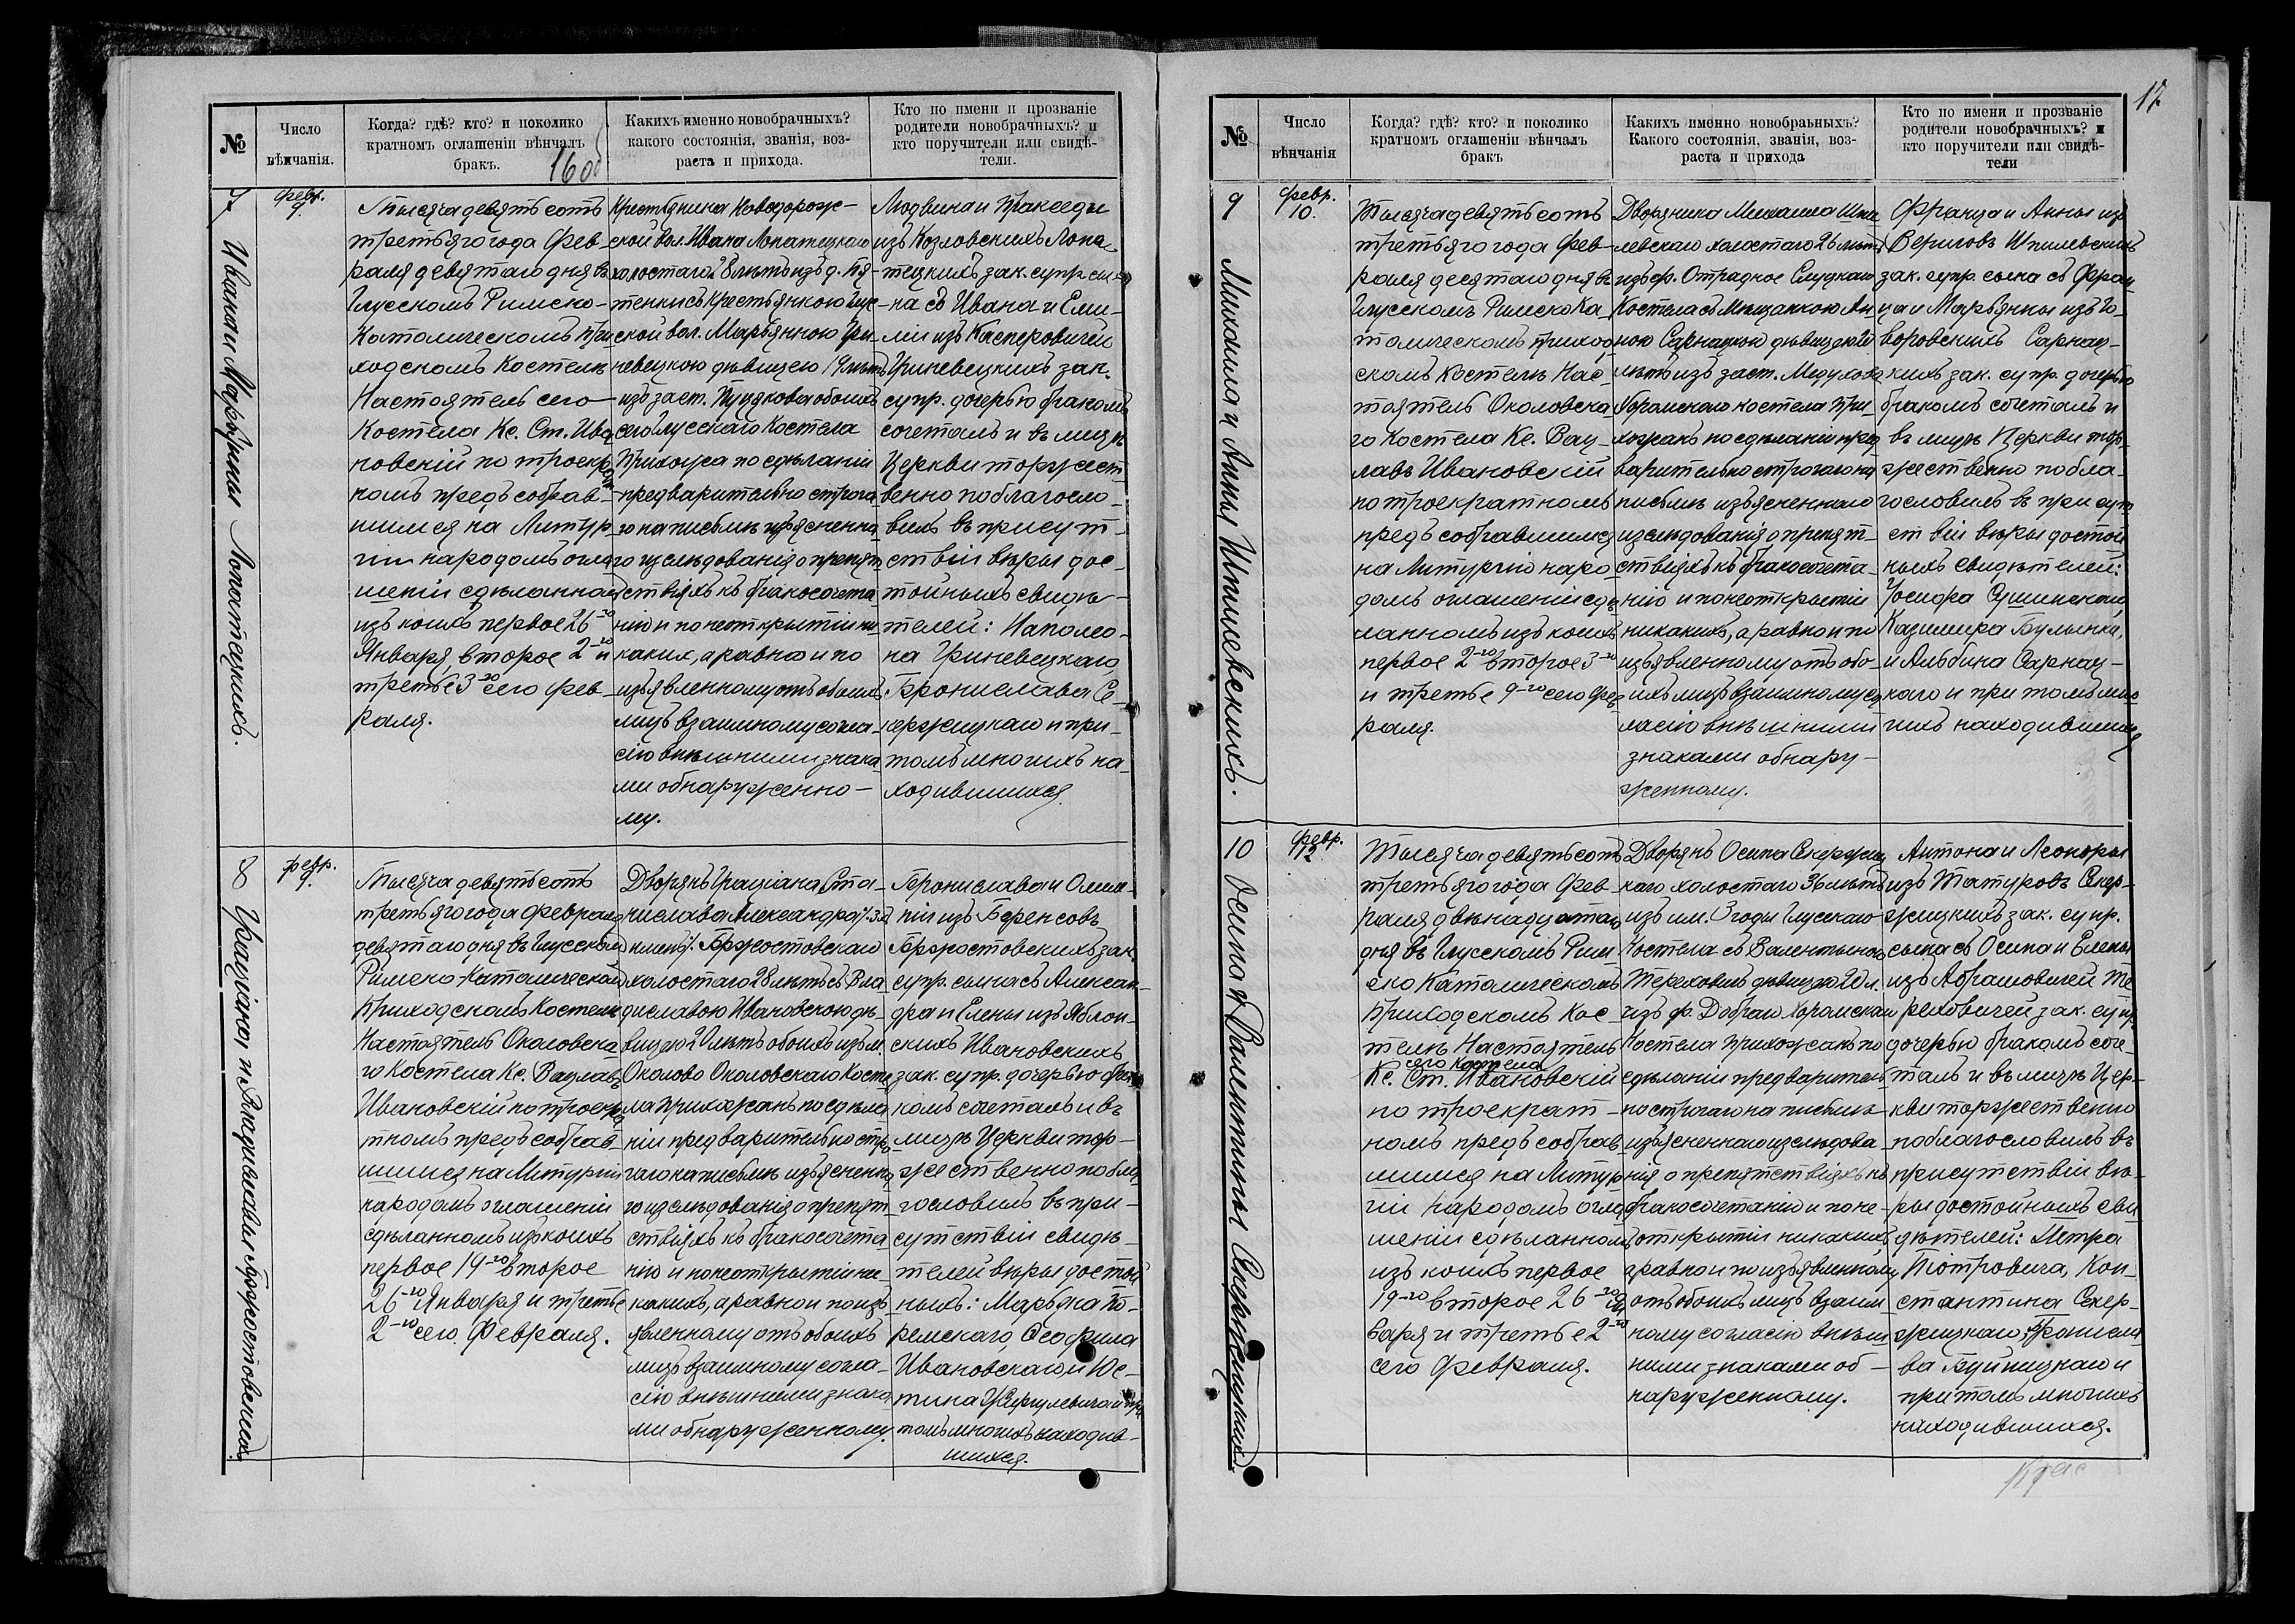 №
Число
вѣнчанія.
Когда? гдѣ? кто? и поколико
кратномъ оглашеніи вѣнчалъ
бракъ.
160б
Какихъ именно новобрачныхъ?
какого состоянія, званія, воз-
раста и прихода.
Кто по имени и прозваніе
родители новобрачныхъ? и
кто поручители или свидѣ-
тели.
7
Ивана и Марьянны Лопатецкихъ.
Февр.
9.
Тысяча девятьсотъ
третьяго года Фев-
раля девятаго дня въ
Глусскомъ Римско-
Католическомъ При-
ходскомъ Костелѣ
Настоятель сего
Костела Кс. Ст. Ива
новскій по троекрат
номъ предъ собрав-
шимся на Литур
гіи народомъ огла
шеніи сдѣланномъ
изъ коихъ первое 26-го
Января, второе 2-го и
третье 3-го сего Фев-
раля.
Крестьянина Новодорож-
ской вол. Ивана Лопатецкаго
холостаго 28 лѣтъ изъ д. Пя-
тенки съ крестьянкою Глус-
ской вол. Марьянною Гри-
невецкою дѣвицею 19 лѣтъ
изъ заст. обоихъ
сего Глусскаго Костела
Прихожа по сдѣланіи
предварительно строга
го на письмѣ изъясненна
го изслѣдованія о препят
ствіяхъ къ бракосочета
нію и по неоткрытіи ни-
какихъ, а равно и по
изъявленному отъ обоихъ
лицъ взаимному согла-
сію внѣшними знака
ми обнаруженно-
му.
Людвика и Пракседы
изъ Козловскихъ Лопа-
тецкихъ зак. супр. сы
на съ Ивана и Еми-
ліи изъ Касперовичей
Гриневецкихъ зак.
супр. дочерью бракомъ
сочеталъ и въ лицѣ
Церкви торжест
венно поблагосло-
вилъ въ присут-
ствіи вѣры дос-
тойныхъ свидѣ-
телей: Наполео-
на Гриневецкаго,
Бронислава Се
кержицкаго и при
томъ многихъ на-
ходившихся.
8
Граціана, и Владиславы Бржостовскихъ.
февр.
9.
Тысяча девятьсотъ
третьяго года Февраля
девятаго дня въ Глусскомъ
Римско-Католическомъ
Приходскомъ Костелѣ
Настоятель Околовска
го Костела Кс. Вацлавъ
Ивановскій по троекра
тномъ предъ собрав-
шимся на Литургіи
народомъ оглашеніи
сдѣланномъ изъ коихъ
первое 19-го второе
26-го Января и третье
2-го сего Февраля.
Дворянъ Граціана Ста-
нислава Александра /3хъ
именъ/ Бржостовскаго
холостаго 28 лѣтъ съ Вла-
диславою Ивановскою дѣ-
вицею 20 лѣтъ обоихъ изъ м.
Околово Околовскаго Косте
ла прихожанъ по сдѣла
ніи предварительно стро
гаго на письмѣ изъясненна
го изслѣдованія о препят-
ствіяхъ къ бракосочета
нію и по неоткрытіи ни-
какихъ, а равно и по изъ
явленному отъ обоихъ
лицъ взаимному согла-
сію внѣшними знака
ми обнаруженному.
Бронислава и Олим-
піи изъ Беренсовъ
Бржостовскихъ зак.
супр. сына съ Алексан-
дра и Елены изъ Яблон-
скихъ Ивановскихъ
зак. супр. дочерью бра
комъ сочеталъ и въ
лицѣ Церкви тор-
жественно побла
гословилъ въ при-
сутствіи свидѣ-
телей вѣры достой
ныхъ: Марьяна
Ѳеофила
Ивановскаго и Юс-
тина и при
томъ многихъ находив-
шихся.
17
№
Число
вѣнчанія
Когда? гдѣ? кто? и поколико
кратномъ оглашеніи вѣнчалъ
бракъ
Какихъ именно новобрачныхъ?
Какого состоянія, званія, воз-
раста и прихода
Кто по имени и прозваніе
родители новобрачныхъ? и
кто поручители или свидѣ-
тели
9
Михаила и Анны Шпилевскихъ.
Февр.
10.
Тысяча девятьсотъ
третьяго года Фев-
раля десятаго дня въ
Глусскомъ Римско Ка-
толическомъ приход-
скомъ Костелѣ Нас-
тоятель Околовска
го Костела Кс. Вац-
лавъ Ивановскій
по троекратномъ
предъ собравшимся
на Литургію наро-
домъ оглашеніи сдѣ
ланномъ изъ коихъ
первое 2-го второе 3-го
и третье 9-го сего Фев
раля.
Дворянина Михаила Шпи
левскаго холостаго 26 лѣтъ
изъ ф. Отрадное Слуцкаго
Костела съ мѣщанкою Ан-
ною Сарнацкою дѣвицею 20
лѣтъ изъ заст.
Хоромскаго костела при-
хожанъ по сдѣланіи пред
варительно строгаго на
письмѣ изъясненнаго
изслѣдованія о препят-
ствіяхъ къ бракосочета-
нію и по неоткрытіи
никакихъ, а равно и по
изъявленному отъ обо-
ихъ лицъ взаимному со
гласію внѣшними
знаками обнару-
женному.
Франца и Анны изъ
Вериговъ Шпилевскихъ
зак. супр. сына съ Фран
ца и Марьянны изъ Го-
воровскихъ Сарнац-
кихъ зак. супр. дочерью
бракомъ сочеталъ и
въ лицѣ Церкви тор-
жественно побла-
гословилъ въ присут
ствіи вѣры достой
ныхъ свидѣтелей:
Іосифа Сушинскаго,
Казимира Булынки,
и Альбина Сарнац-
каго и при томъ мно
гихъ находившихся
10
Осипа и Валентины Секержицкихъ.
Февр.
12.
Тысяча девятьсотъ
третьяго года Фев
раля двѣнадцатаго
дня въ Глусскомъ Рим
ско Католическомъ
Приходскомъ Кос-
телѣ Настоятель
сего Костела
Кс. Ст. Ивановскій
по троекрат-
номъ предъ собрав
шимся на Литур
гіи народомъ огла
шеніи сдѣланномъ
изъ коихъ первое
19-го второе 26-го Ян
варя и третье 2-го
сего Февраля.
Дворянъ Осипа Секержиц
каго холостаго 36 лѣтъ
изъ им. Згоды Глусскаго
Костела съ Валентиною
Тереховичъ дѣвицею 20 л.
изъ ф. Добраго Хоромскаго
Костела Прихожанъ по
сдѣланіи предваритель
но строгаго на письмѣ
изъясненнаго изслѣдова
нія о препятствіяхъ къ
бракосочетанію и по не-
открытіи никакихъ
а равно и по изъявленному
отъ обоихъ лицъ взаим
ному согласію внѣш
ними знаками об-
наруженному.
Антона и Леоноры
изъ Татуровъ Секер-
жицкихъ зак. супр.
сына съ Осипа и Елены
изъ Абрамовичей Те
реховичей зак. супр.
дочерью бракомъ соче-
талъ и въ лицѣ Цер-
кви торжественно
поблагословилъ въ
присутствіи вѣ-
ры достойныхъ сви
дѣтелей: Петра
Піотровича, Кон-
стантина Секер-
жицкаго, Бронисла
ва Буйницкаго и
при томъ многихъ
находившихся.